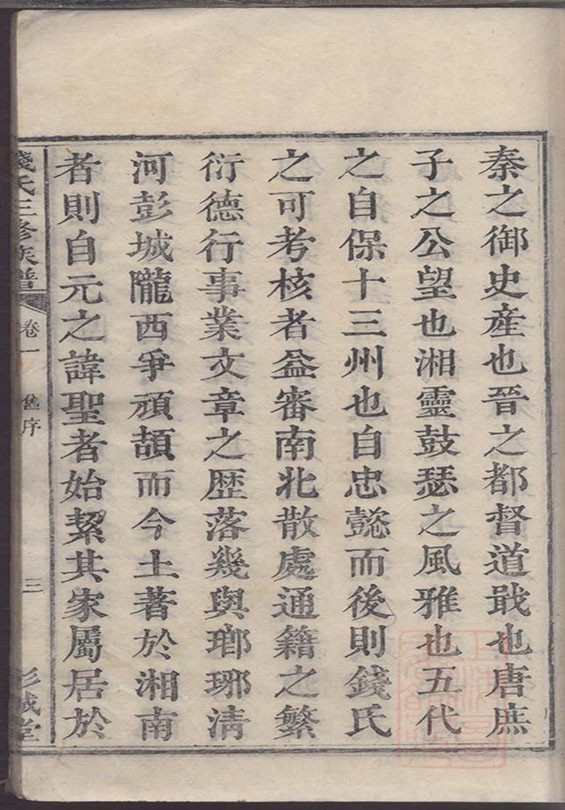 秦之御史産也晉之都督道戢也唐庶
子之公望也湘靈鼓瑟之風雅也五代
之自保十三州也自忠懿而後則錢氏
之可考核者益審南北散處通籍之繁
衍德行事業文章之歴落幾與瑯琊淸
河彭城隴西爭頑頡而今土著於湘南
者則自元之諱聖者始挈其家屬居於
錢氏三修族譜 卷一 舊序 三 彭城堂